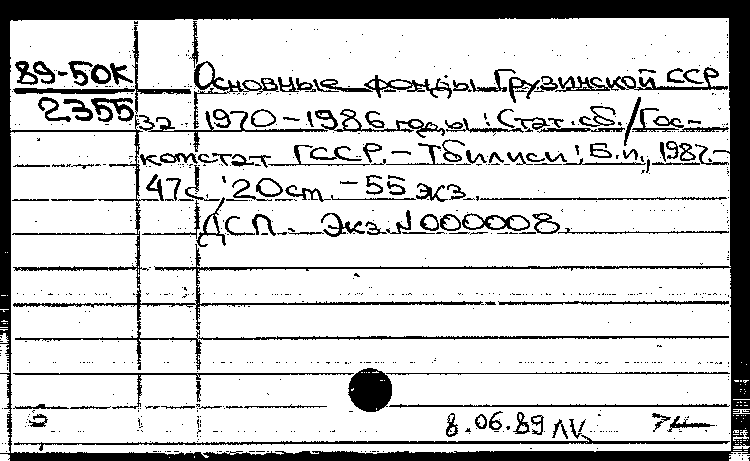 89-50К Основные фонды Грузинской ССР
2355 за 1970-1986 годы: Стат. сб. / Гос-
комстат ГССР. - Тбилиси: Б.и., 1987.-
47с.; 20 cm. - 55 экз.
ДСП. Экз. N 000008.
б 8.06.89